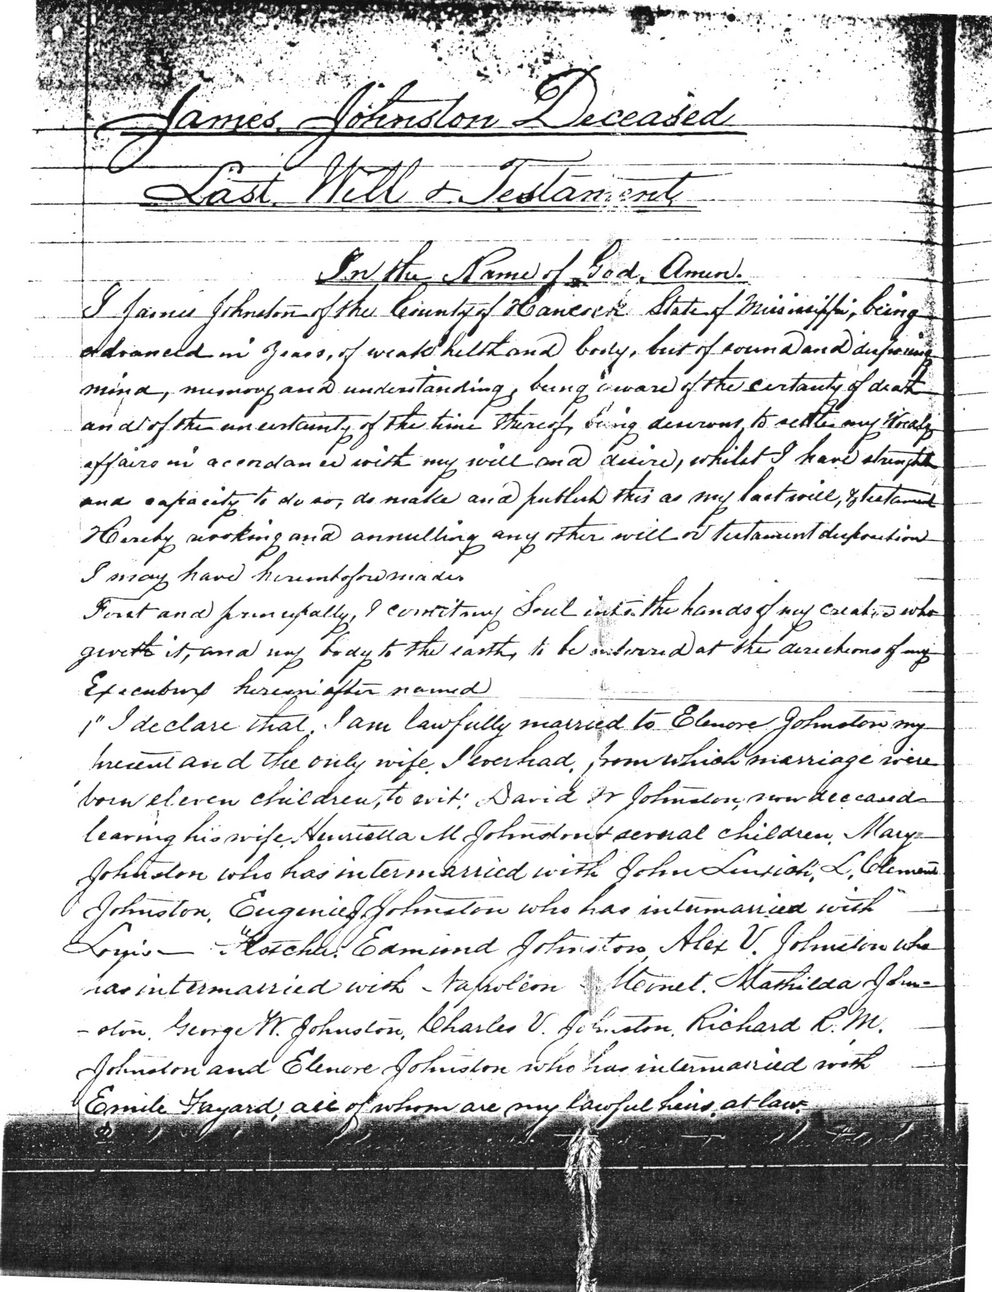 James Johnston Deceased
Last Will & Testament
In the Name of God, Amen.
I James Johnston of the County of Hancock State of Mississippi, being
advanced in Years, of weak helth and body, but of sound and disposing
mind, memory and understanding, being aware of the certanty of death
and of the uncertainty of the time thereof, being desirous, to settle my
affairs in accordance with my will and desire, whilst I have strength
and capacity to do so, do make and publish this as my last will, & testament
Hereby revoking and annulling any other will or testament disposition
I may have heretofore made.
First and principally, I comit my Soul into the hands of my creator who
giveth it, and my body to the earth, to be interred at the directions of my
herein after named
1" I declare that, I am lawfully married to Elenore Johnston my
present and the only wife, I ever had, from which marriage were
born eleven children, to wit; David W Johnston, now deceased
leaving his wife Henrietta M Johnston & several children, Mary
Johnston who has intermarried with John L, Clement
Johnston, Eugenie J Johnston who has intermarried with
Louis Edmond Johnston, Alex V. Johnston who
has intermarried with Napoleon Monet. Mathilda John-
-ston, George W. Johnston, Charles V. Johnston, Richard R. M.
Johnston and Elenore Johnston who has intermarried with
Emile Fayard, all of whom are my lawful heirs, at law.